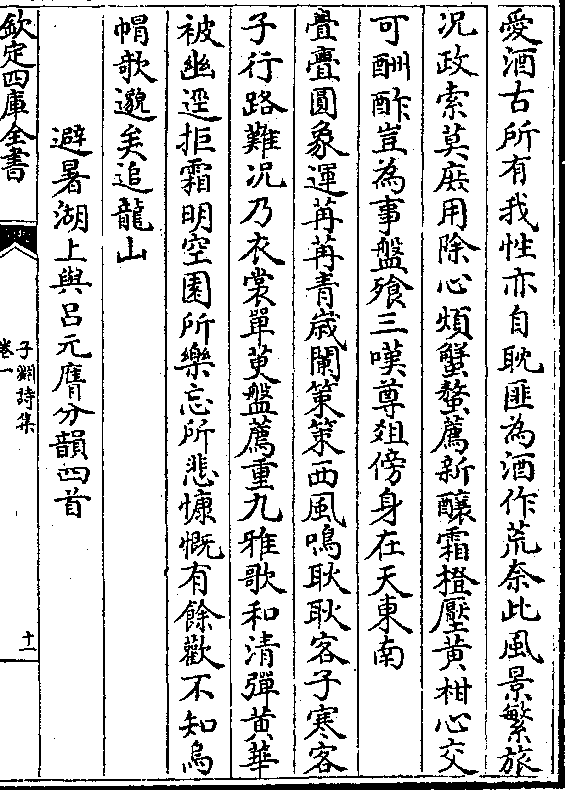 愛酒古所有我性亦自耽匪為酒作荒奈此風景繁旅
况政索莫庶用除心煩蟹螯薦新釀霜橙壓黄柑心交
可酬酢豈為事盤飱三嘆尊俎傍身在天東南
亹亹圓象運苒苒青歲闌策策西風鳴耿耿客子寒客
子行路難况乃衣裳單萸盤薦重九雅歌和清彈黄華
被幽逕拒霜明空園所樂忘所悲慷慨有餘歡不知烏
帽歌邈矣追龍山
避暑湖上與吕元膺分韻四首
欽定四庫全書
子淵詩集
卷一
十一